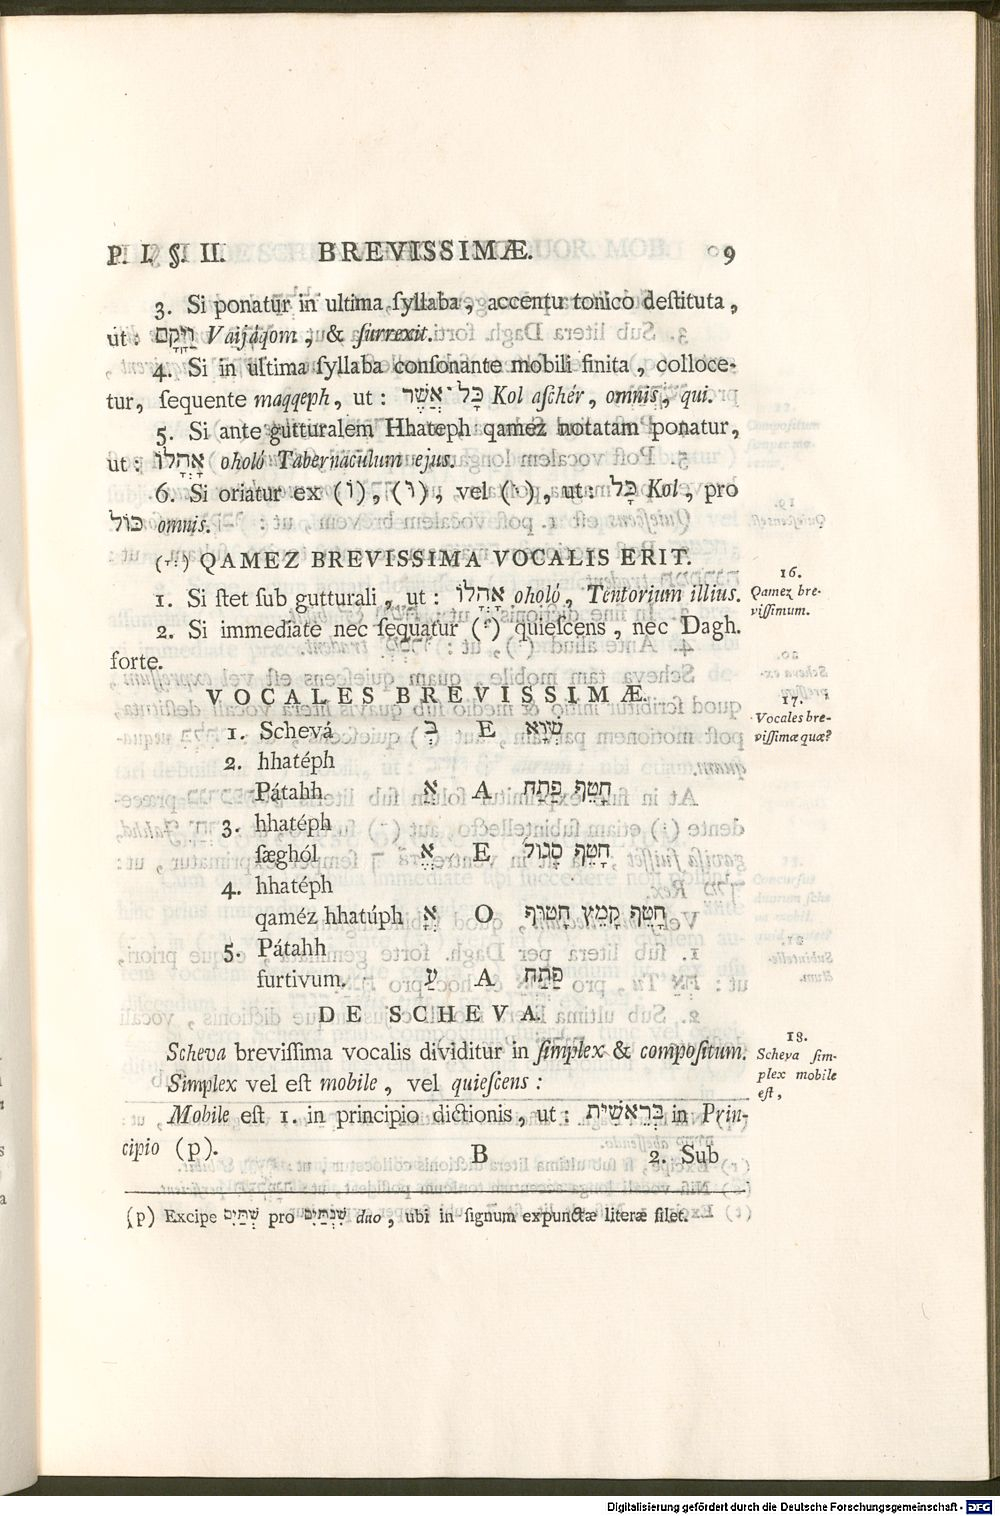 P. I. §. II. BREVISSIMÆ. 9
3. Si ponatur in ultima ſyllaba, accentu tonico deſtituta,
ut: וַיָּקָם Váijáqom, & ſurrexit.
4. Si in ultima ſyllaba conſonante mobili finita, colloce-
tur, ſequente maqqeph, ut: כָּל־אֲשֶׁר Kol aſchér, omnis, qui.
5. Si ante gutturalem Hhateph qamez notatam ponatur,
ut: אָהֳלוֹ oholó Tabernaculum ejus.
6. Si oriatur ex (וֹ), (וֹ), vel (ֹ), ut: כָּל Kol, pro
כּוֹל omnis.
(ֳ) QAMEZ BREVISSIMA VOCALIS ERIT.
1. Si ſtet ſub gutturali, ut: אָהֳלוֹ oholó, Tentorium illius.
2. Si immediate nec ſequatur (ְ) quieſcens, nec Dagh.
forte.
16.
Qamez bre-
viſſimum.
VOCALES BREVISSIMÆ.
17.
Vocales bre-
viſſimæ quæ?
1. Schevá בְּ E שְׁוָא
2. hhatéph
Pátahh אֲ A חָטֵף פַּתַח
3. hhatéph
ſæghól אֱ E חָטֵף סֶגוֹל
4. hhatéph
qaméz hhatúph אֳ O חָטֵף קָמֵץ חָטוּף
5. Pátahh
furtivum. עַ A פַּתַח
DE SCHEVA.
Scheva breviſſima vocalis dividitur in ſimplex & compoſitum.
Simplex vel eſt mobile, vel quieſcens:
18.
Scheva ſim-
plex mobile
eſt,
Mobile eſt 1. in principio dictionis, ut: בְּרֵאשִׁית in Prin-
cipio (p).
B 2. Sub
(p) Excipe שְׁתַּיִם pro שְׁנְתַּיִם duo, ubi in ſignum expunctæ literæ ſilet.
Digitalisierung gefördert durch die Deutsche Forschungsgemeinschaft - DFG